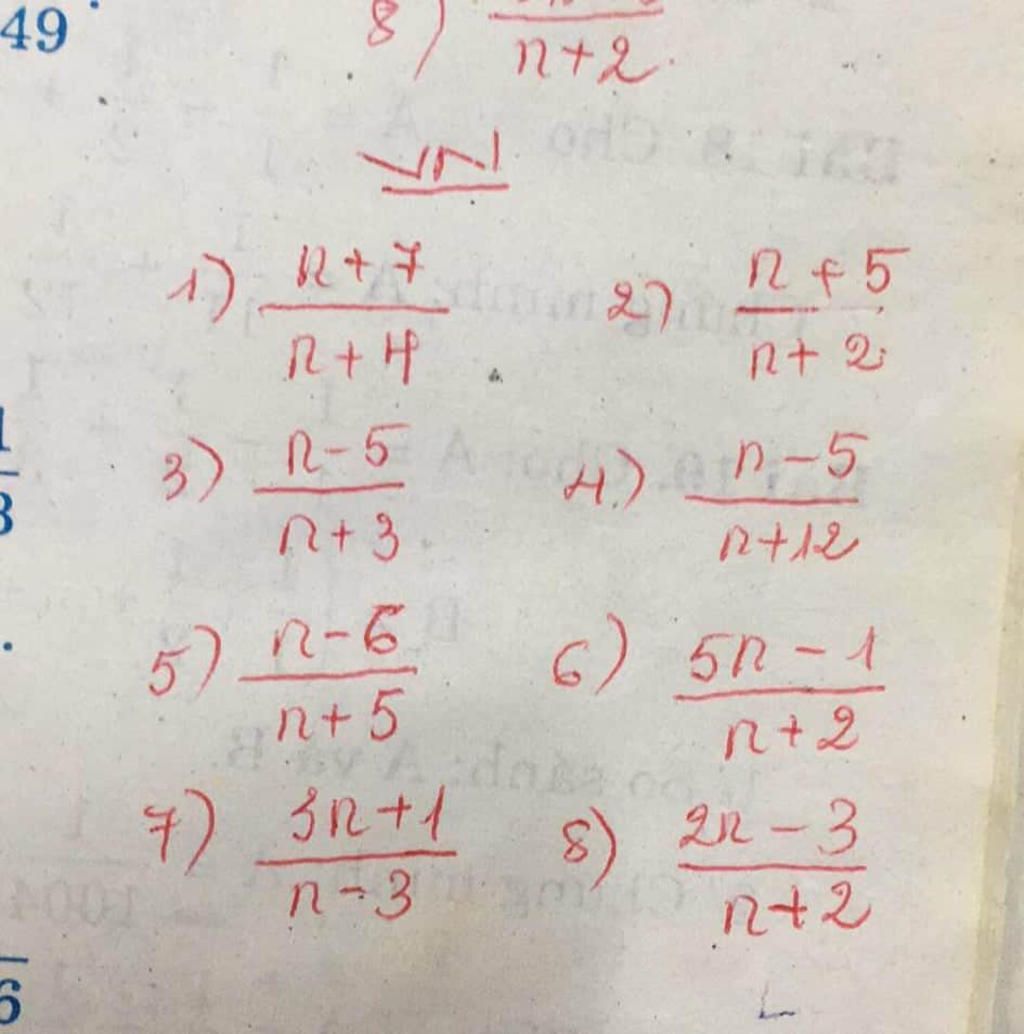 49
8) n+2
VN
1) n+7 / n+4 2) n+5 / n+2
3) n-5 / n+3 4) n-5 / n+12
5) n-6 / n+5 6) 5n-1 / n+2
7) 3n+1 / n-3 8) 2n-3 / n+2